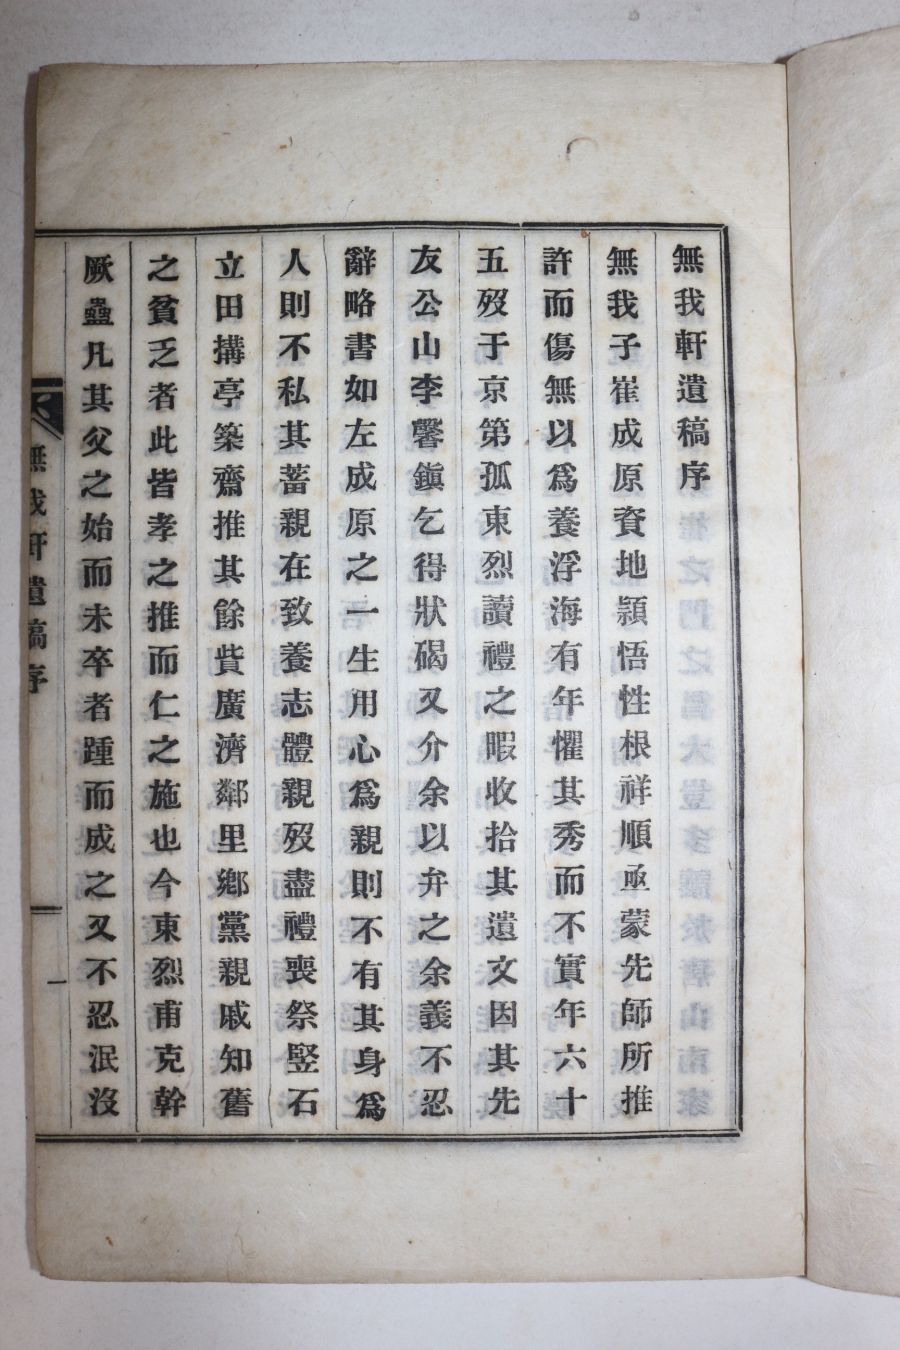 無我軒遺稿序
無我子崔成原資地穎悟性根祥順亟蒙先師所推
許而傷無以爲養浮海有年懼其秀而不實年六十
五歿于京第孤東烈讀禮之暇收拾其遺文因其先
友公山李馨鎭乞得狀碣又介余以弁之余義不忍
辭略書如左成原之一生用心爲親則不有其身爲
人則不私其蓄親在致養志體親歿盡禮喪祭竪石
立田搆亭築齋推其餘貲廣濟鄰里鄕黨親戚知舊
之貧乏者此皆孝之推而仁之施也今東烈甫克幹
厥蠱凡其父之始而未卒者踵而成之又不忍泯沒
無我軒遺稿序
一